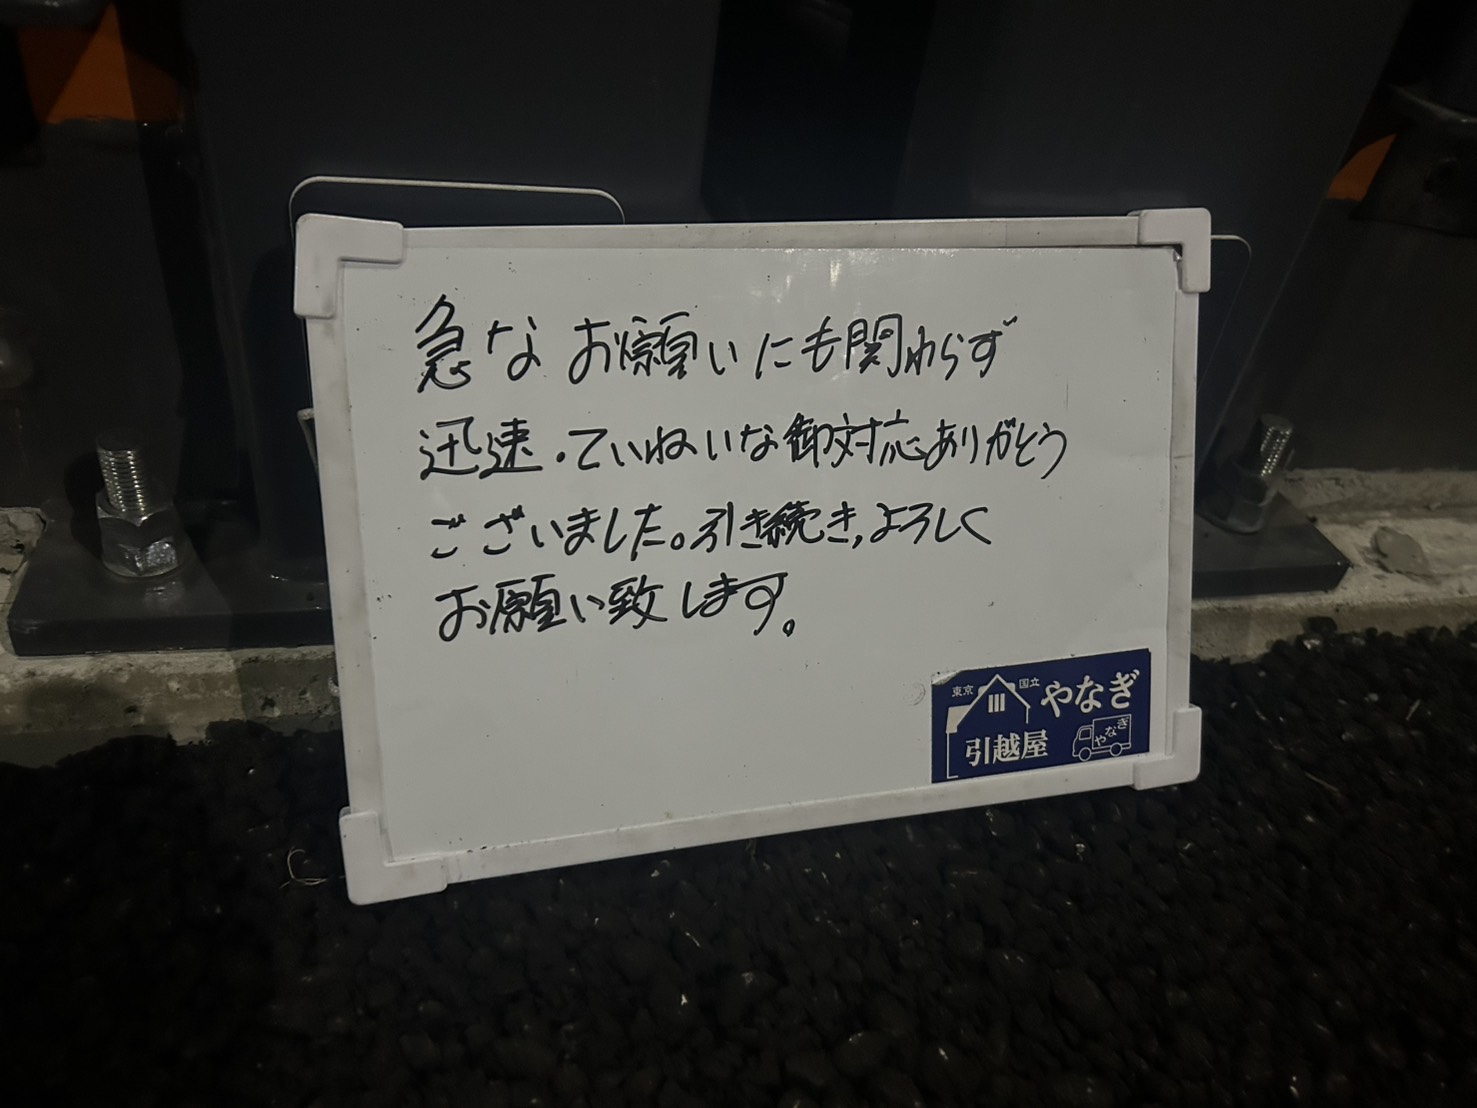 急なお願いにも関わらず
迅速・ていねいな御対応ありがとう
ございました。引き続き,よろしく
お願い致します。
東京 国立 やなぎ
引越屋
やなぎ